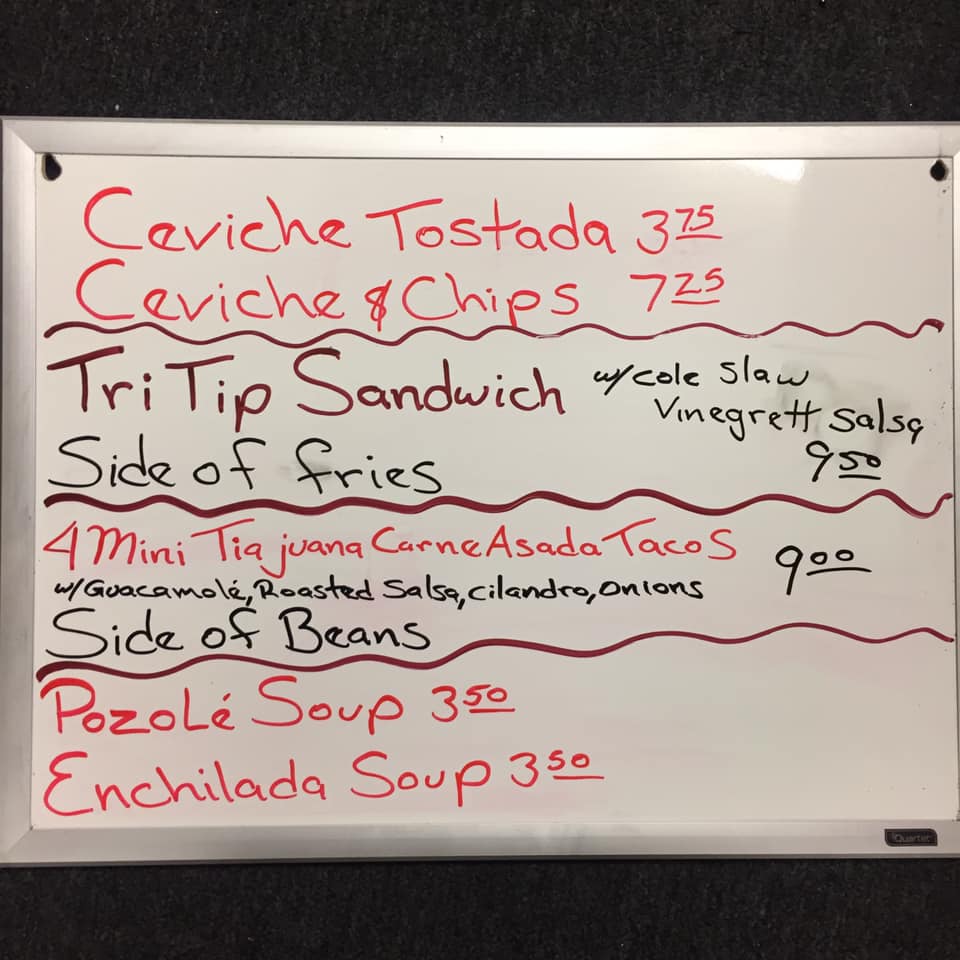 Ceviche Tostada 3 75
Ceviche & Chips 7 25
Tri Tip Sandwich w/ cole slaw
Vinegrett Salsa
Side of fries 9 50
4 Mini Tiajuana Carne Asada Tacos 9 00
w/Guacamolé, Roasted Salsa, cilandro, onions
Side of Beans
Pozolé Soup 3 50
Enchilada Soup 3 50
Quartet